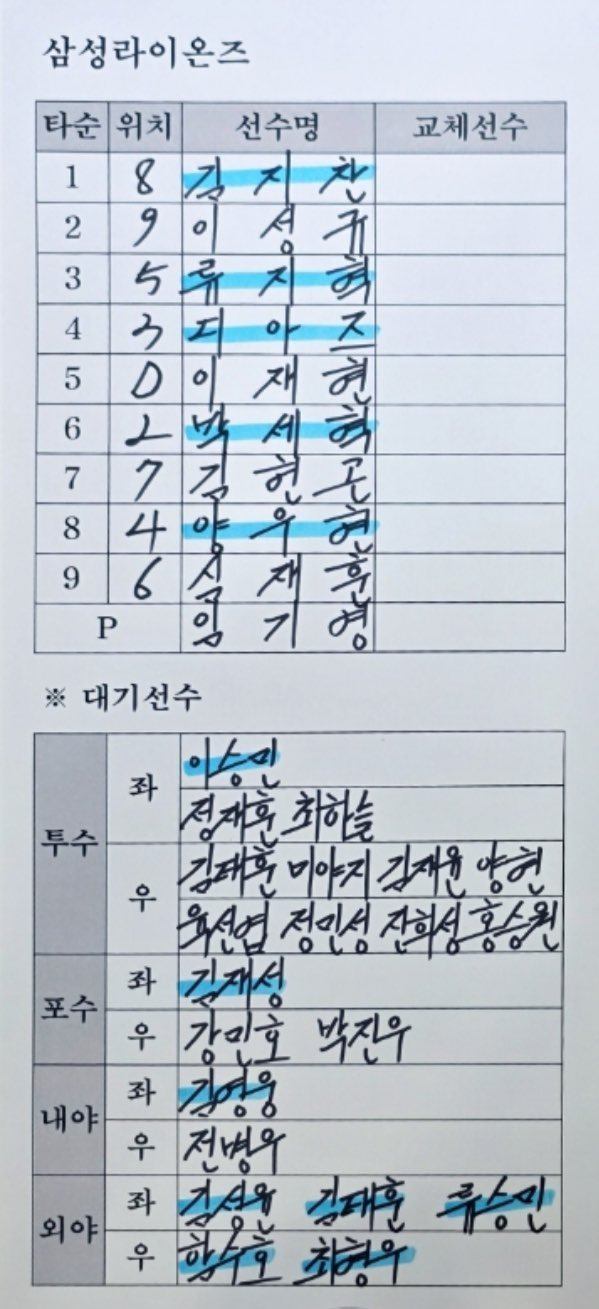 삼성라이온즈
타순 위치 선수명 교체선수
1 8 김지찬
2 9 이성규
3 5 류지혁
4 3 디아즈
5 D 이재현
6 2 박세혁
7 7 김헌곤
8 4 양우현
9 6 심재훈
P 임기영
※ 대기선수
투수 좌 이승민
정재훈 최하늘
우 김태훈 미야지 김재윤 양현
육선엽 정민성 진희성 홍승원
포수 좌 김재성
우 강민호 박진우
내야 좌 김영웅
우 전병우
외야 좌 김성윤 김태훈 류승민
우 함수호 최형우